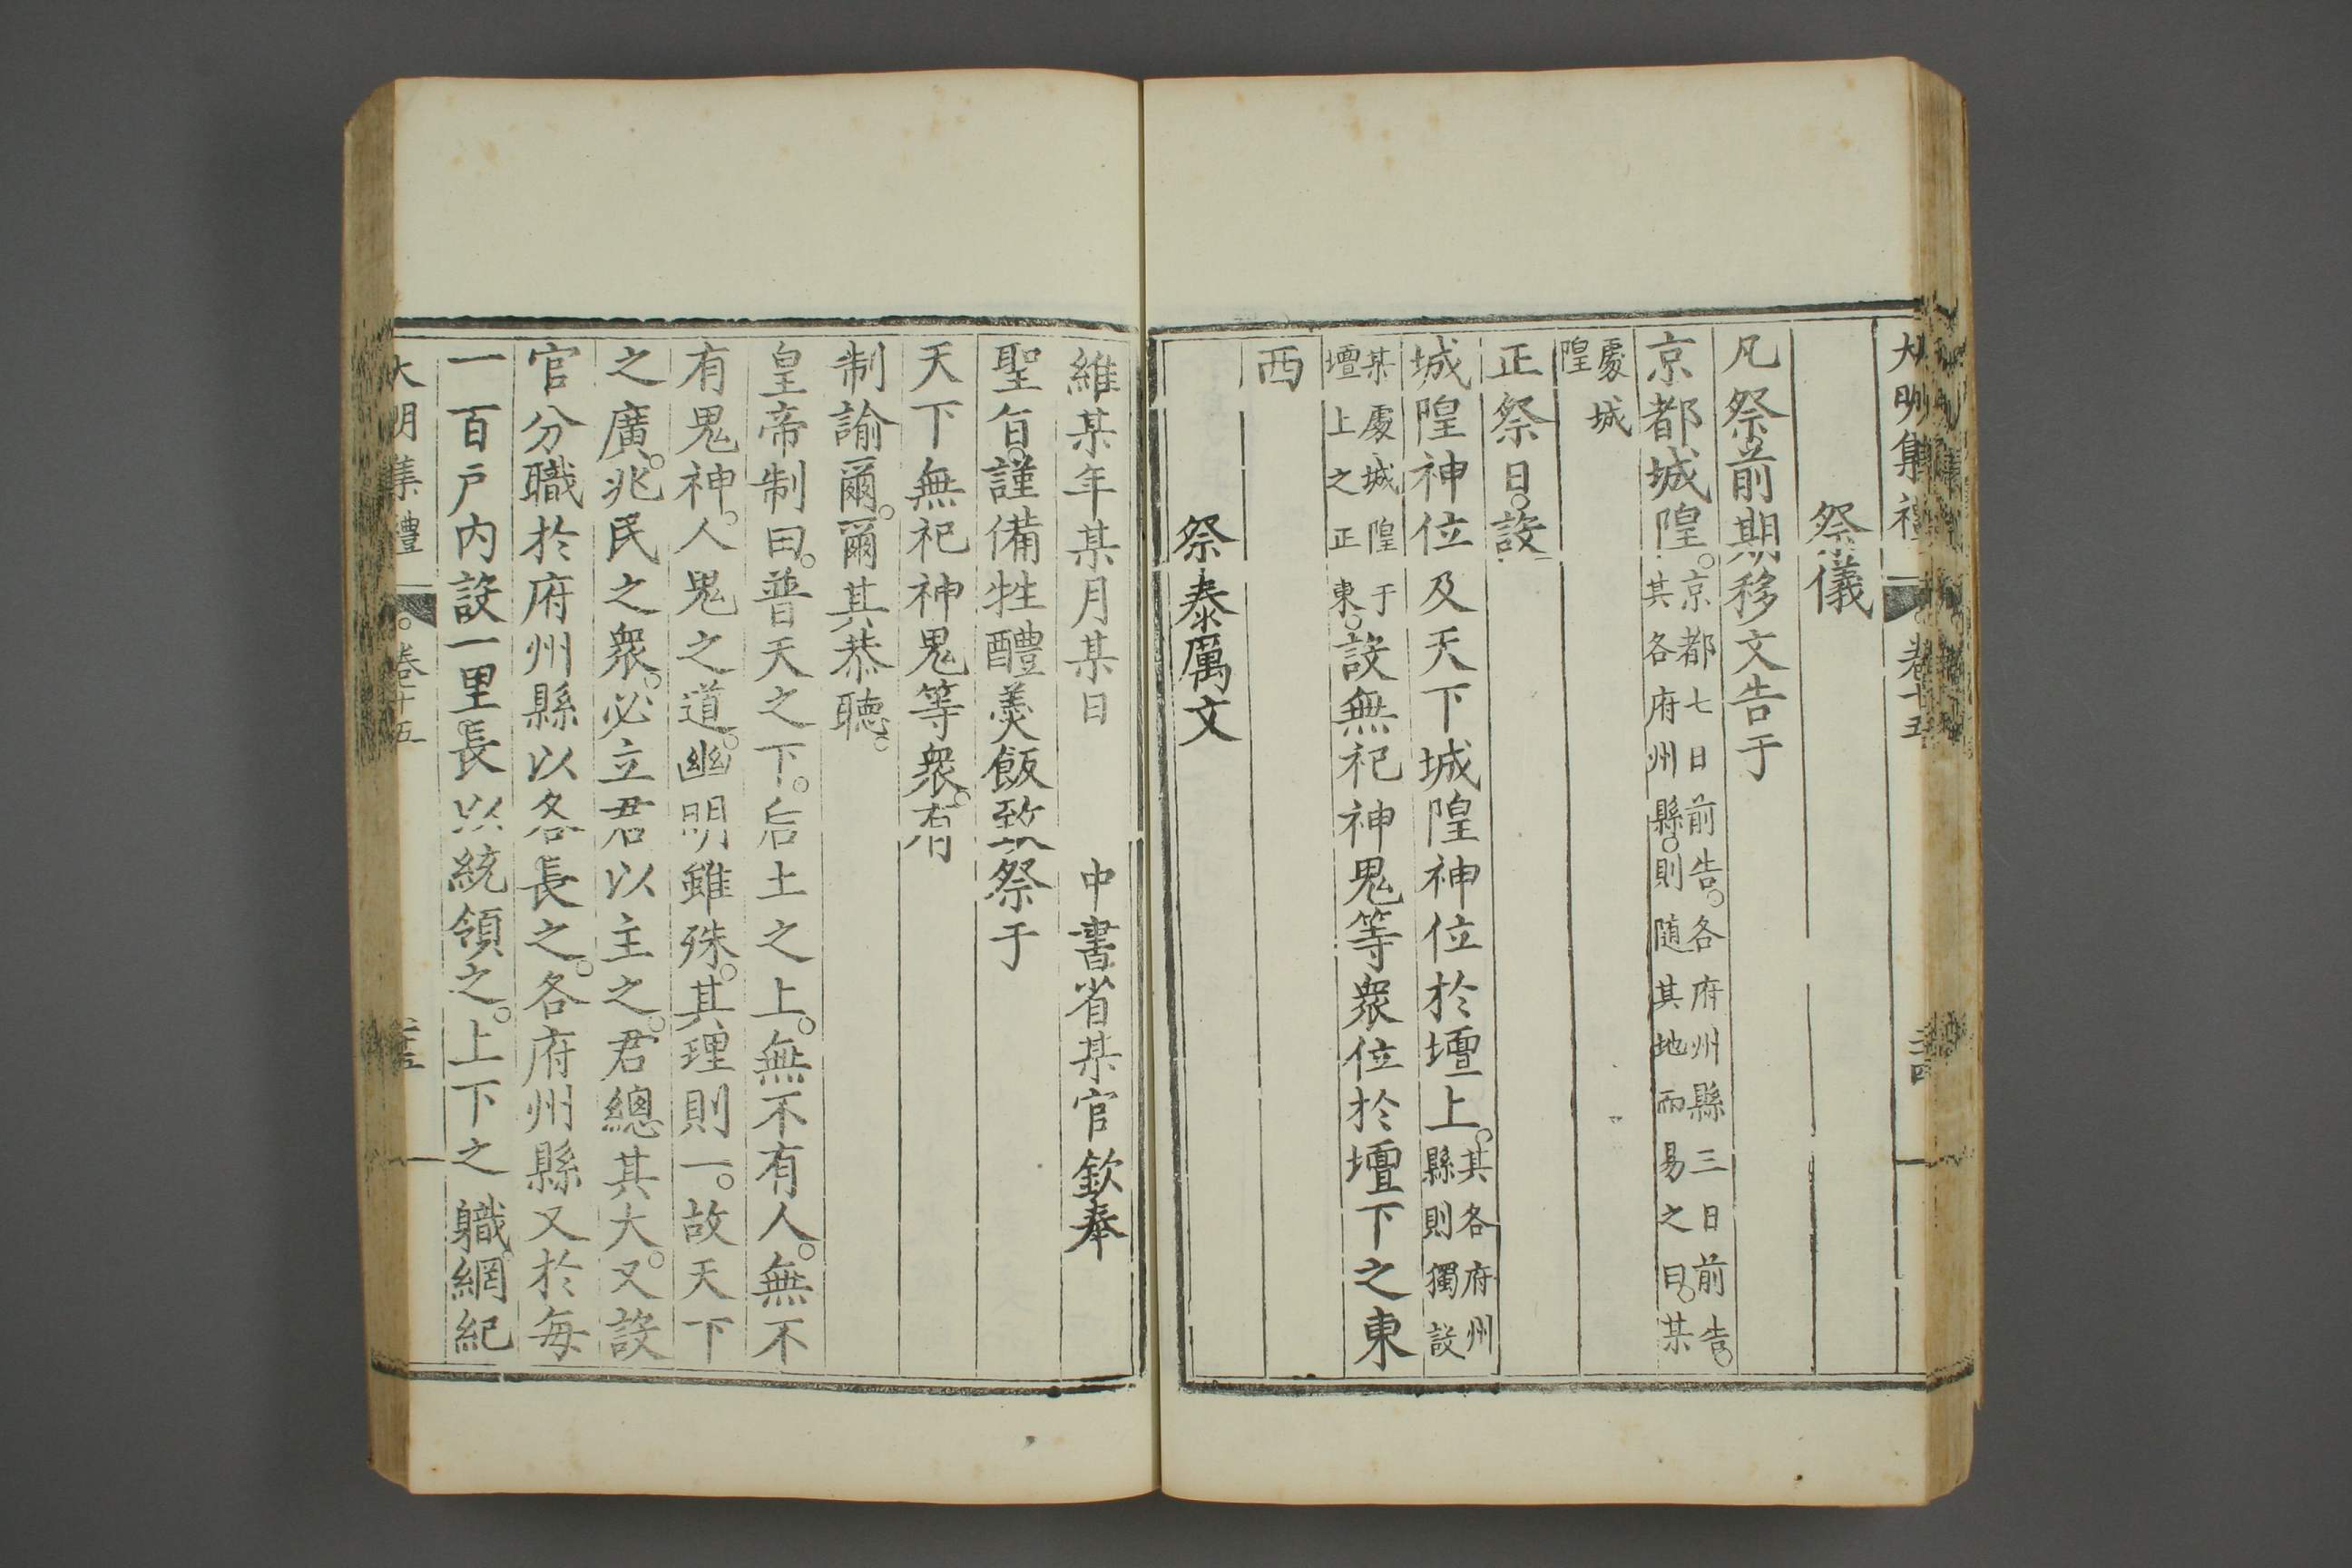 大明集禮 卷十五 二十四
祭儀
凡祭前期移文告于
京都城隍。京都七日前告。各府州縣三日前告。其各府州縣。則随其地而易之曰。某
處城隍
正祭日。設
城隍神位及天下城隍神位於壇上。其各府州縣則獨設
某處城隍于壇上之正東。設無祀神鬼等衆位於壇下之東
西
祭泰厲文
維某年某月某日 中書省某官欽奉
聖旨。謹備牲醴羹飯致祭于
天下無祀神鬼等衆。有
制諭爾。爾其恭聽。
皇帝制曰。普天之下。后土之上。無不有人。無不
有鬼神。人鬼之道。幽明雖殊。其理則一。故天下
之廣。兆民之衆。必立君以主之。君總其大。又設
官分職於府州縣以各長之。各府州縣又於每
一百戶內設一里長以統領之。上下之職。綱紀
大明集禮 卷十五 二十五